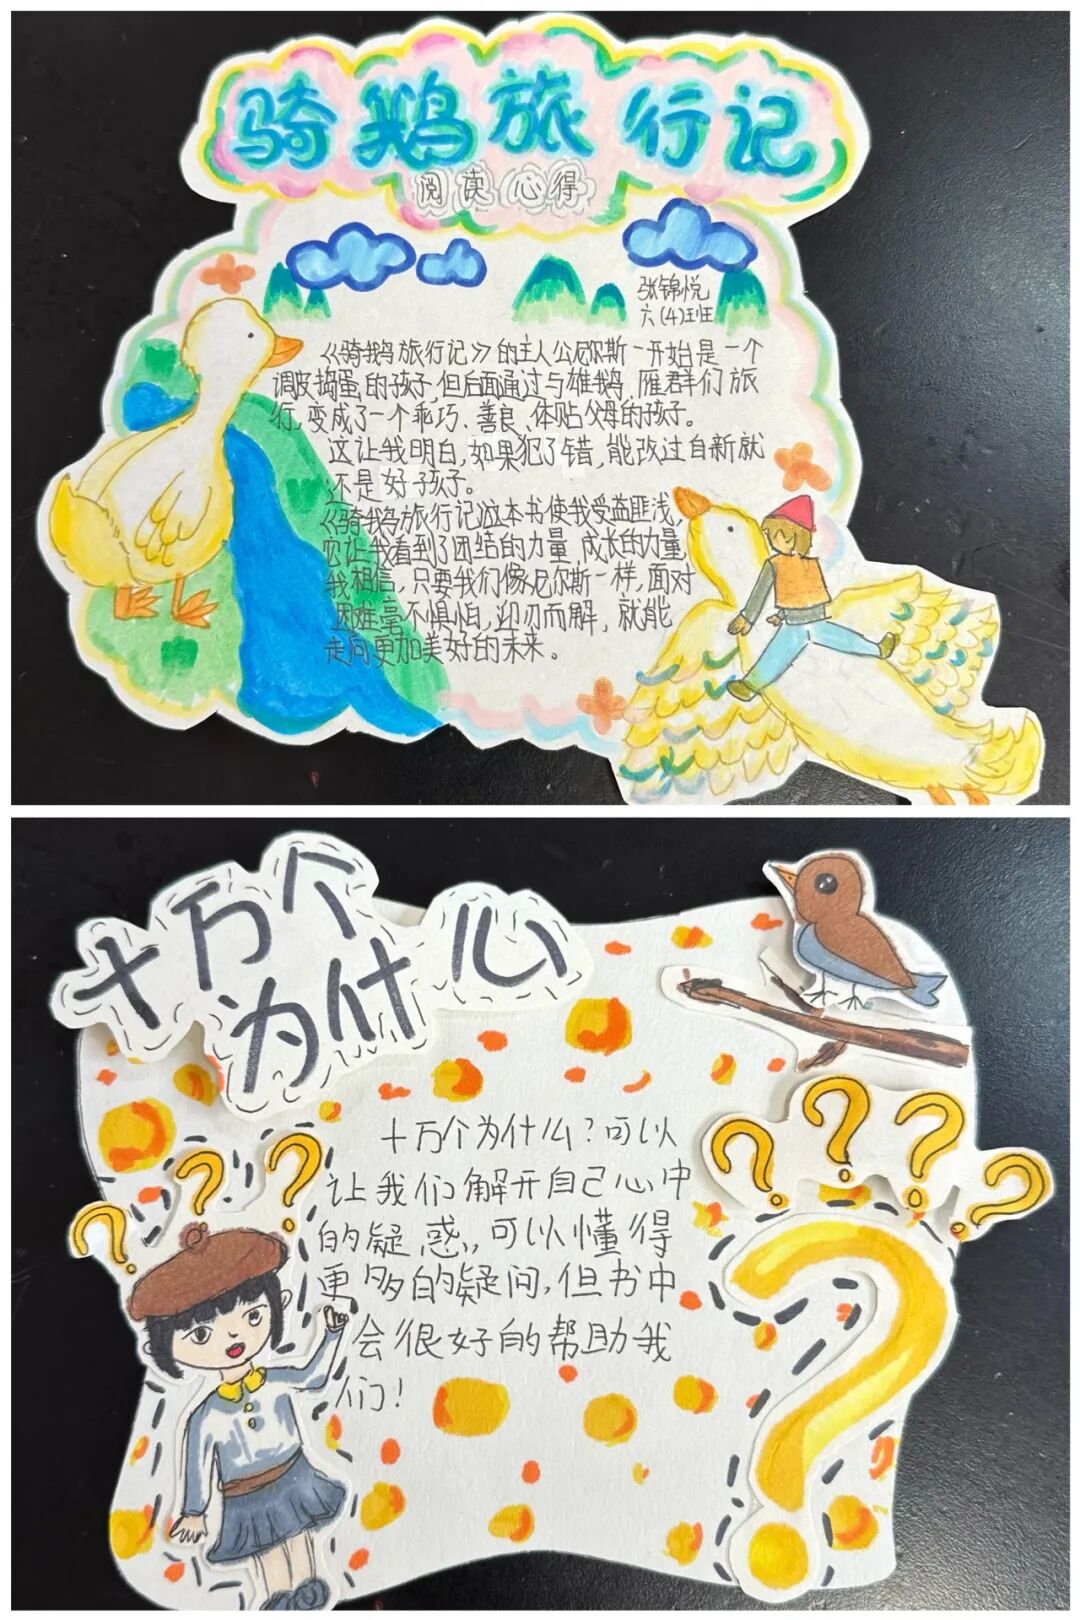 骑鹅旅行记
阅读心得
张锦悦
六(4)班
《骑鹅旅行记》的主人公尼尔斯一开始是一个
调皮捣蛋的孩子,但后面通过与雄鹅、雁群们旅
行,变成了一个乖巧、善良、体贴父母的孩子。
这让我明白,如果犯了错,能改过自新就
不是好孩子。
《骑鹅旅行记》这本书使我受益匪浅,
它让我看到了团结的力量,成长的力量,
我相信,只要我们像尼尔斯一样,面对
困难毫不惧怕,迎刃而解,就能
走向更加美好的未来。
十万个
为什
心
十万个为什么?可以
让我们解开自己心中
的疑惑,可以懂得
更多的疑问,但书中
会很好的帮助我
们!